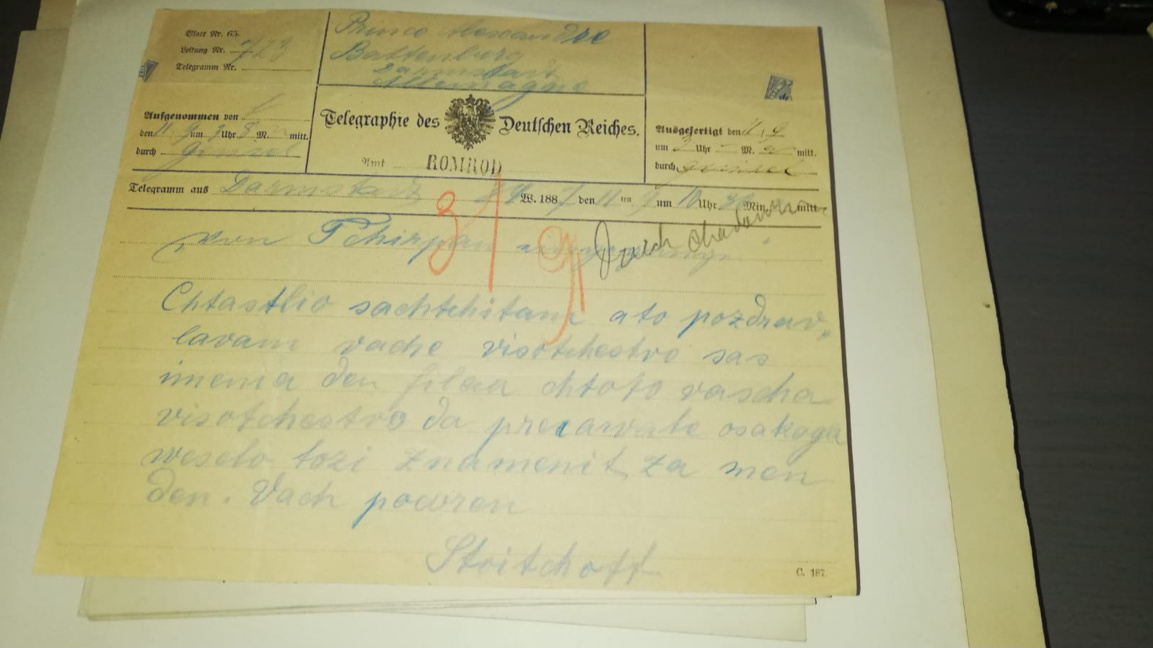 Blatt Nr. 65.
Leitung Nr. 723
Telegramm Nr.
Prince Alexandre
Battenberg
Darmstadt
Allemagne
Aufgenommen von
den 11. 9 um Uhr M. mitt.
durch
Telegraphie des Deutschen Reiches.
Amt ROMROD
Ausgefertigt den 11. 9
um Uhr M. mitt.
durch
Telegramm aus Darmstadt W. 1887 den 11 9 um 10 Uhr Min. mitt.
von Tchirpan
Chtastlio sachtchitam ato pozdrav,
lavam vache visotchestvo sas
imenia den jilaa chtoto vascha
visotchestvo da precarvate osakoga
veselo tozi znamenit za men
den. Vach povren
Stoitchoff
C. 187.